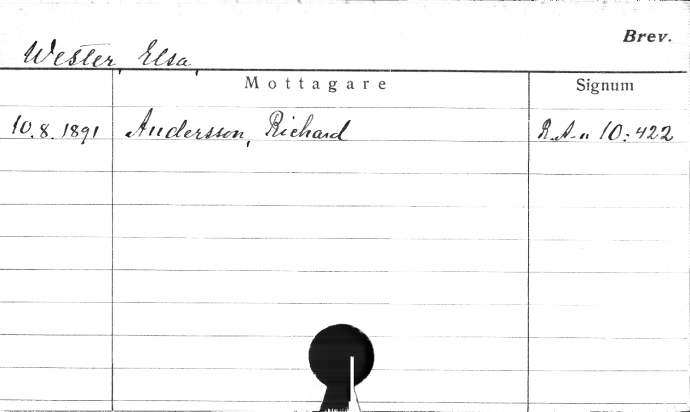 Brev.
Wester, Elsa,
Mottagare Signum
10.8.1891 Andersson, Richard R.A:s 10:422